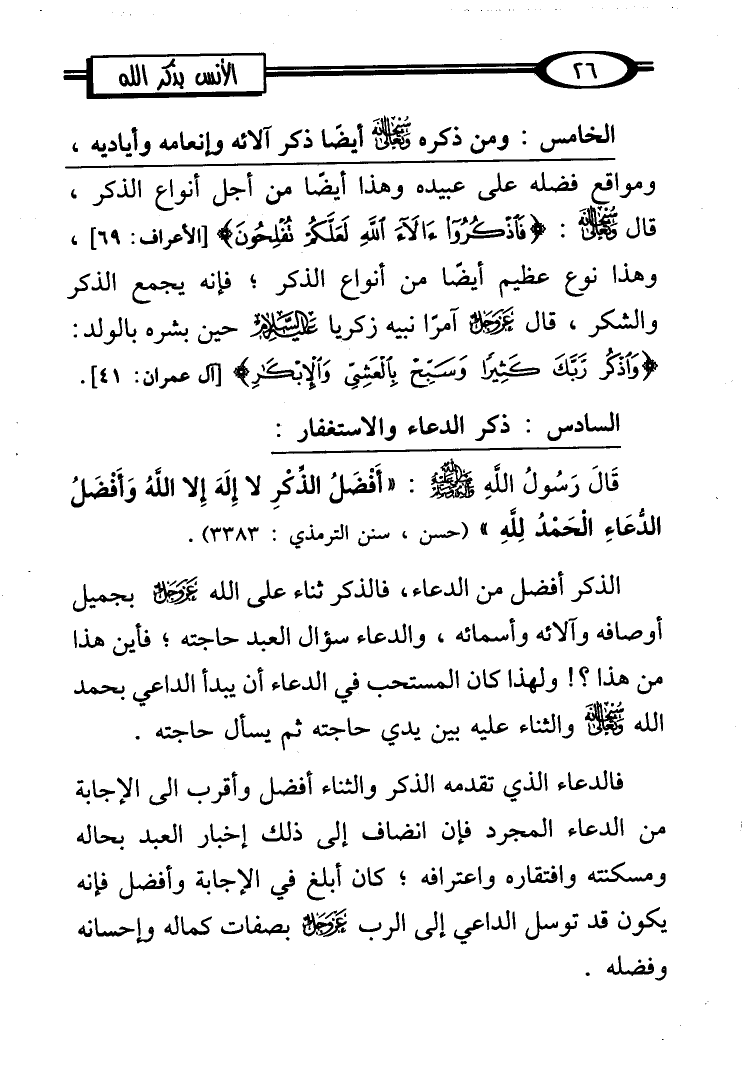 ٢٦
الأنس بذكر الله
الخامس : ومن ذكره سبحانه وتعالى أيضًا ذكر آلائه وإنعامه وأياديه ،
ومواقع فضله على عبيده وهذا أيضًا من أجل أنواع الذكر ،
قال سبحانه وتعالى : ﴿فَاذْكُرُوٓا۟ ءَالَآءَ ٱللَّهِ لَعَلَّكُمْ تُفْلِحُونَ﴾ [الأعراف: ٦٩] ،
وهذا نوع عظيم أيضًا من أنواع الذكر ؛ فإنه يجمع الذكر
والشكر ، قال عز وجل آمرًا نبيه زكريا عليه السلام حين بشره بالولد:
﴿وَٱذْكُر رَّبَّكَ كَثِيرًا وَسَبِّحْ بِٱلْعَشِيِّ وَٱلْإِبْكَٰرِ﴾ [آل عمران: ٤١].
السادس : ذكر الدعاء والاستغفار :
قَالَ رَسُولُ اللَّهِ صلى الله عليه وسلم : «أَفْضَلُ الذِّكْرِ لا إِلَهَ إِلا اللَّهُ وَأَفْضَلُ
الدُّعَاءِ الْحَمْدُ لِلَّهِ» (حسن ، سنن الترمذي : ٣٣٨٣) .
الذكر أفضل من الدعاء، فالذكر ثناء على الله عز وجل بجميل
أوصافه وآلائه وأسمائه ، والدعاء سؤال العبد حاجته ؛ فأين هذا
من هذا ؟! ولهذا كان المستحب في الدعاء أن يبدأ الداعي بحمد
الله سبحانه وتعالى والثناء عليه بين يدي حاجته ثم يسأل حاجته .
فالدعاء الذي تقدمه الذكر والثناء أفضل وأقرب الى الإجابة
من الدعاء المجرد فإن انضاف إلى ذلك إخبار العبد بحاله
ومسكنته وافتقاره واعترافه ؛ كان أبلغ في الإجابة وأفضل فإنه
يكون قد توسل الداعي إلى الرب عز وجل بصفات كماله وإحسانه
وفضله .